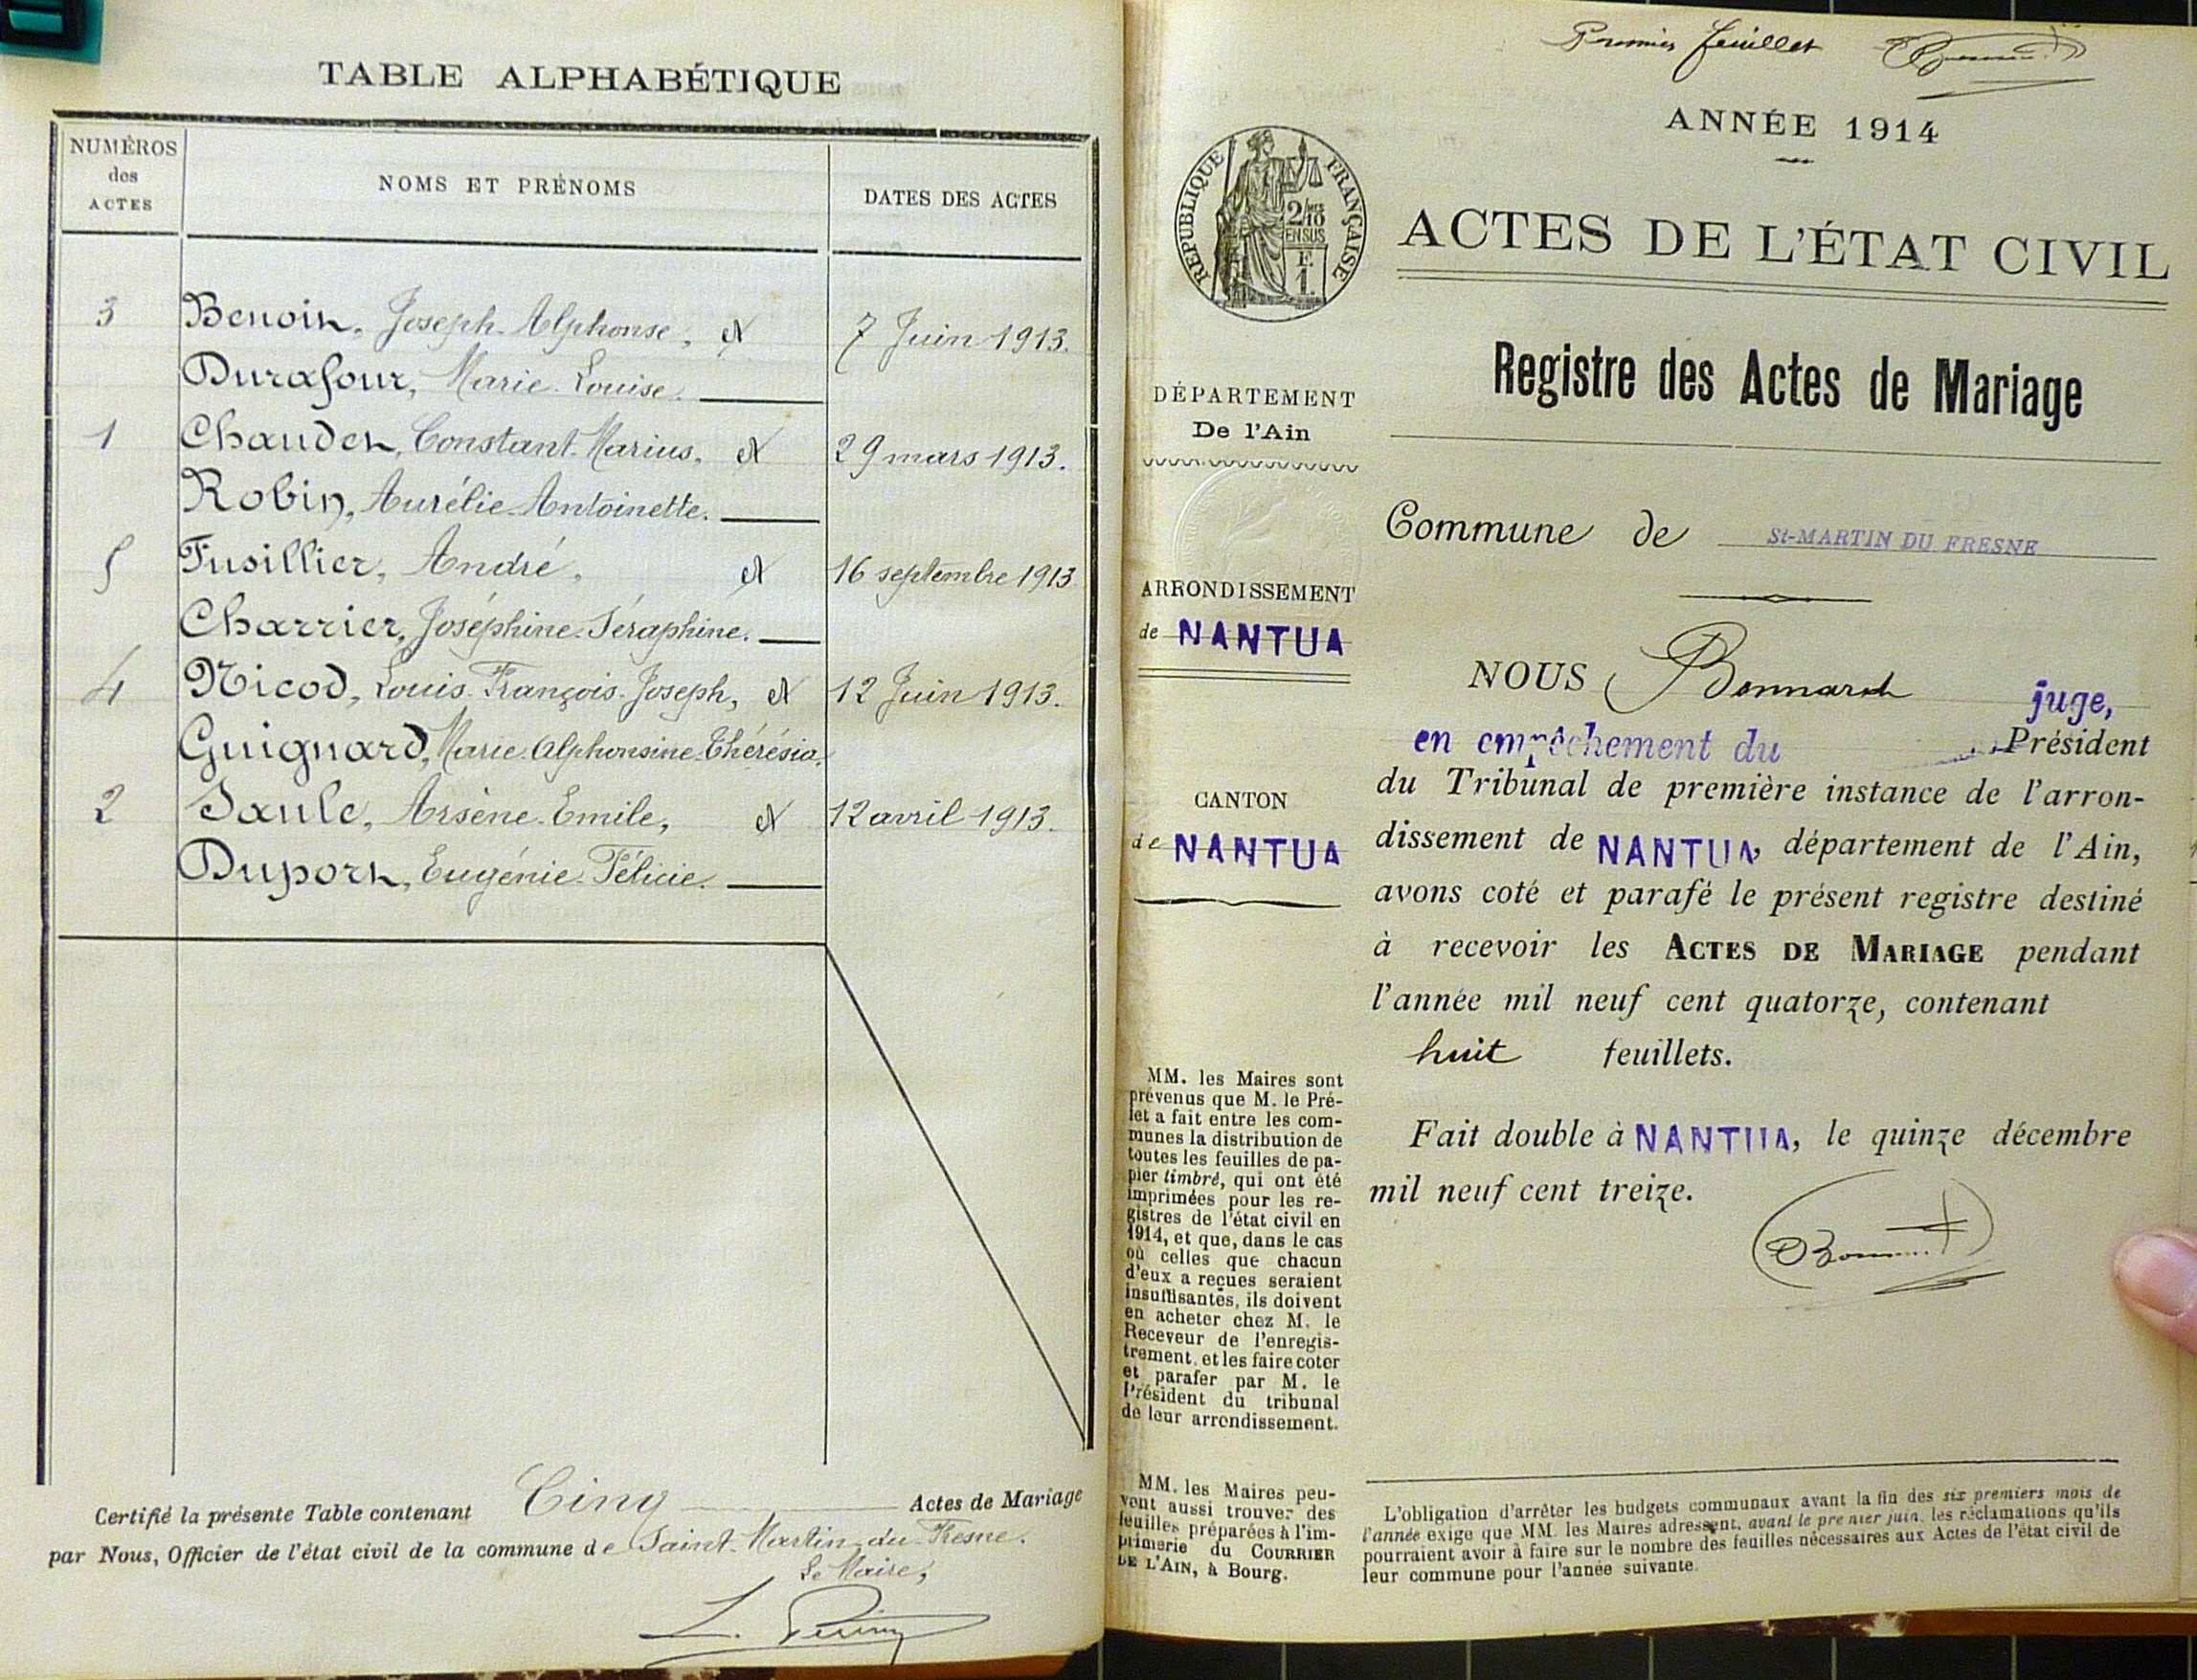 TABLE ALPHABÉTIQUE
NUMÉROS
des
ACTES
NOMS ET PRÉNOMS
DATES DES ACTES
3 Benoit, Joseph Alphonse, et 7 Juin 1913.
Durafour, Marie Louise.
1 Chaudet, Constant Marius, et 29 mars 1913.
Robin, Aurélie Antoinette.
5 Fusillier, André, et 16 septembre 1913
Charrier, Joséphine Séraphine.
4 Nicod, Louis François Joseph, et 12 Juin 1913.
Guignard, Marie Alphonsine Thérésia.
2 Saule, Arsène Emile, et 12 avril 1913.
Duport, Eugénie Félicie.
Certifié la présente Table contenant Cinq Actes de Mariage
par Nous, Officier de l'état civil de la commune de Saint-Martin-du-Fresne.
Le Maire,
Premier feuillet
ANNÉE 1914
RÉPUBLIQUE FRANÇAISE
2/10
EN SUS
F.
1.
ACTES DE L'ÉTAT CIVIL
Registre des Actes de Mariage
DÉPARTEMENT
De l'Ain
Commune de St-MARTIN DU FRESNE
ARRONDISSEMENT
de NANTUA
CANTON
de NANTUA
NOUS Bonnard juge,
en empêchement du Président
du Tribunal de première instance de l'arron-
dissement de NANTUA, département de l'Ain,
avons coté et parafé le présent registre destiné
à recevoir les ACTES DE MARIAGE pendant
l'année mil neuf cent quatorze, contenant
huit feuillets.
Fait double à NANTUA, le quinze décembre
mil neuf cent treize.
MM. les Maires sont
prévenus que M. le Pré-
fet a fait entre les com-
munes la distribution de
toutes les feuilles de pa-
pier timbré, qui ont été
imprimées pour les re-
gistres de l'état civil en
1914, et que, dans le cas
où celles que chacun
d'eux a reçues seraient
insuffisantes, ils doivent
en acheter chez M. le
Receveur de l'enregis-
trement, et les faire coter
et parafer par M. le
Président du tribunal
de leur arrondissement.
MM. les Maires peu-
vent aussi trouver des
feuilles préparées à l'im-
primerie du COURRIER
DE L'AIN, à Bourg.
L'obligation d'arrêter les budgets communaux avant la fin des six premiers mois de
l'année exige que MM. les Maires adressent, avant le premier juin, les réclamations qu'ils
pourraient avoir à faire sur le nombre des feuilles nécessaires aux Actes de l'état civil de
leur commune pour l'année suivante.